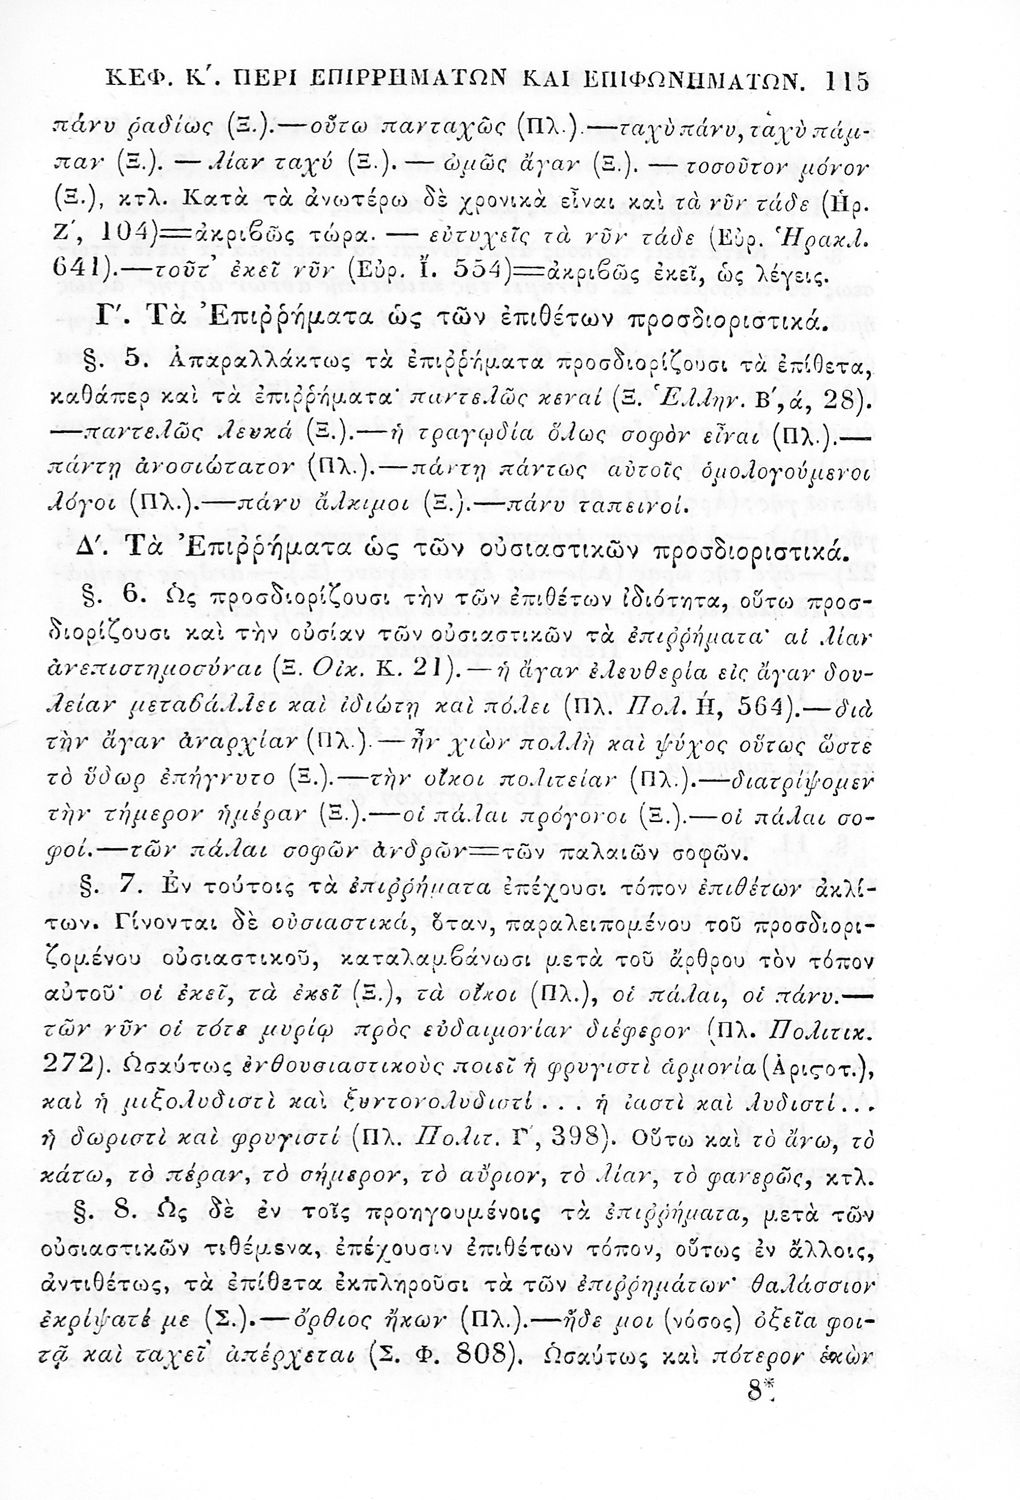 ΚΕΦ. Κ´. ΠΕΡΙ ΕΠΙΡΡΗΜΑΤΩΝ ΚΑΙ ΕΠΙΦΩΝΗΜΑΤΩΝ. 115
πάνυ ῥαδίως (Ξ.).—οὕτω πανταχῶς (Πλ.).—ταχὺ πάνυ, ταχὺ πάμ-
παν (Ξ.). — λίαν ταχύ (Ξ.). — ὠμῶς ἄγαν (Ξ.). — τοσοῦτον μόνον
(Ξ.), κτλ. Κατὰ τὰ ἀνωτέρω δὲ χρονικὰ εἶναι καὶ τὰ νῦν τάδε (Ἡρ.
Ζ´, 104)=ἀκριβῶς τώρα. — εὐτυχεῖς τὰ νῦν τάδε (Εὐρ. Ἡρακλ.
641).—τοῦτ᾿ ἐκεῖ νῦν (Εὐρ. Ἴ. 554)=ἀκριβῶς ἐκεῖ, ὡς λέγεις.
Γ´. Τὰ Ἐπιῤῥήματα ὡς τῶν ἐπιθέτων προσδιοριστικά.
§. 5. Ἀπαραλλάκτως τὰ ἐπιῤῥήματα προσδιορίζουσι τὰ ἐπίθετα,
καθάπερ καὶ τὰ ἐπιῤῥήματα· παντελῶς κεναί (Ξ. Ἑλλην. Β´, ά, 28).
—παντελῶς λευκά (Ξ.).—ἡ τραγῳδία ὅλως σοφὸν εἶναι (Πλ.).—
πάντῃ ἀνοσιώτατον (Πλ.).—πάντῃ πάντως αὐτοῖς ὁμολογούμενοι
λόγοι (Πλ.).—πάνυ ἄλκιμοι (Ξ.).—πάνυ ταπεινοί.
Δ´. Τὰ Ἐπιῤῥήματα ὡς τῶν οὐσιαστικῶν προσδιοριστικά.
§. 6. Ὡς προσδιορίζουσι τὴν τῶν ἐπιθέτων ἰδιότητα, οὕτω προσ-
διορίζουσι καὶ τὴν οὐσίαν τῶν οὐσιαστικῶν τὰ ἐπιῤῥήματα· αἱ λίαν
ἀνεπιστημοσύναι (Ξ. Οἰκ. Κ. 21).—ἡ ἄγαν ἐλευθερία εἰς ἄγαν δου-
λείαν μεταβάλλει καὶ ἰδιώτῃ καὶ πόλει (Πλ. Πολ. Ἠ, 564).—διὰ
τὴν ἄγαν ἀναρχίαν (Πλ.).—ἦν χιὼν πολλὴ καὶ ψύχος οὕτως ὥστε
τὸ ὕδωρ ἐπήγνυτο (Ξ.).—τὴν οἴκοι πολιτείαν (Πλ.).—διατρίψομεν
τὴν τήμερον ἡμέραν (Ξ.).—οἱ πάλαι πρόγονοι (Ξ.).—οἱ πάλαι σο-
φοί.—τῶν πάλαι σοφῶν ἀνδρῶν=τῶν παλαιῶν σοφῶν.
§. 7. Ἐν τούτοις τὰ ἐπιῤῥήματα ἐπέχουσι τόπον ἐπιθέτων ἀκλί-
των. Γίνονται δὲ οὐσιαστικά, ὅταν, παραλειπομένου τοῦ προσδιορι-
ζομένου οὐσιαστικοῦ, καταλαμβάνωσι μετὰ τοῦ ἄρθρου τὸν τόπον
αὐτοῦ· οἱ ἐκεῖ, τὰ ἐκεῖ (Ξ.), τὰ οἴκοι (Πλ.), οἱ πάλαι, οἱ πάνυ.—
τῶν νῦν οἱ τότε μυρίῳ πρὸς εὐδαιμονίαν διέφερον (Πλ. Πολιτικ.
272). Ὡσαύτως ἐνθουσιαστικοὺς ποιεῖ ἡ φρυγιστὶ ἁρμονία (Ἀριστ.),
καὶ ἡ μιξολυδιστὶ καὶ ξυντονολυδιστί . . . ἡ ἰαστὶ καὶ λυδιστί . . .
ἡ δωριστὶ καὶ φρυγιστί (Πλ. Πολιτ. Γ´, 398). Οὕτω καὶ τὸ ἄνω, τὸ
κάτω, τὸ πέραν, τὸ σήμερον, τὸ αὔριον, τὸ λίαν, τὸ φανερῶς, κτλ.
§. 8. Ὡς δὲ ἐν τοῖς προηγουμένοις τὰ ἐπιῤῥήματα, μετὰ τῶν
οὐσιαστικῶν τιθέμενα, ἐπέχουσιν ἐπιθέτων τόπον, οὕτως ἐν ἄλλοις,
ἀντιθέτως, τὰ ἐπίθετα ἐκπληροῦσι τὰ τῶν ἐπιῤῥημάτων· θαλάσσιον
ἐκρίψατέ με (Σ.).—ὄρθιος ἥκων (Πλ.).—ἥδε μοι (νόσος) ὀξεῖα φοι-
τᾷ καὶ ταχεῖ᾿ ἀπέρχεται (Σ. Φ. 808). Ὡσαύτως καὶ πότερον ἑκὼν
8*.